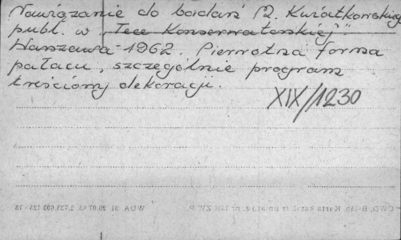 Nawiązanie do badań M. Kwiatkowskiego
publ. w „Tece Konserwatorskiej"
Warszawa 1962. Pierwotna forma
pałacu, szczególnie program
treściowy dekoracji.
XIX/1230